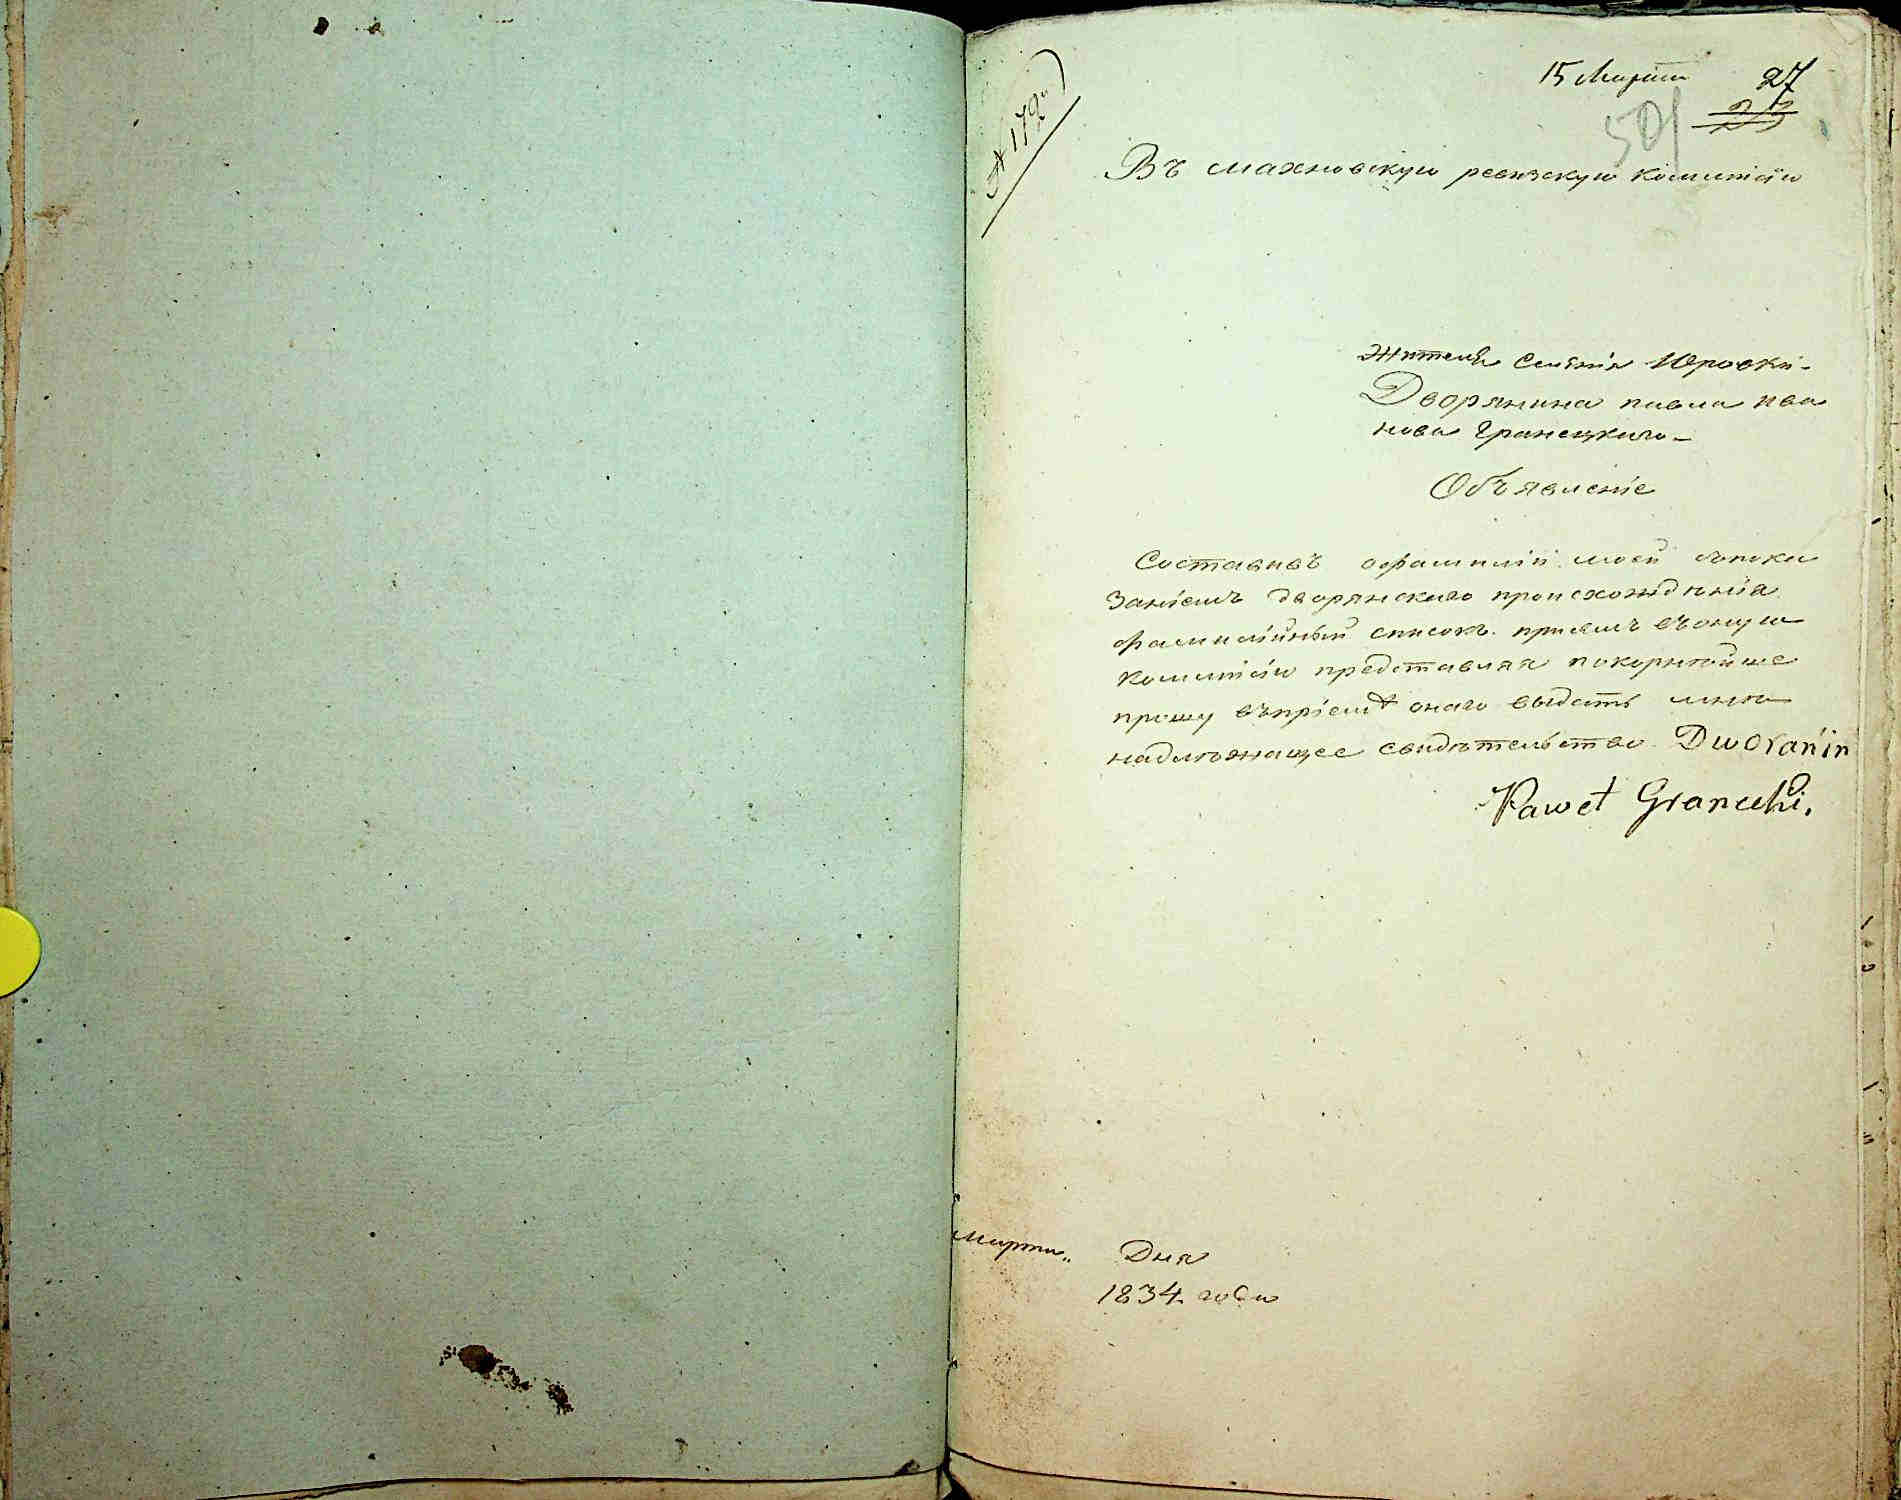 15 Марта 27
25
501
№ 179
Въ махновскую ревизскую комитсію
Жителя Селенія Юровки
Дворянина павла ива
нова Гранецкаго
Объявленіе
Составивъ офамиліи моей сьпока
Заніемъ дворянскаго происхожденія
фамилійный списокъ. приемъ въоную
комитсію представляя покорнейше
прошу въпріемѣ онаго выдать мнѣ
надлѣжащее свидѣтельство. Dworanin
Paweł Granecki.
марта Дня
1834 года